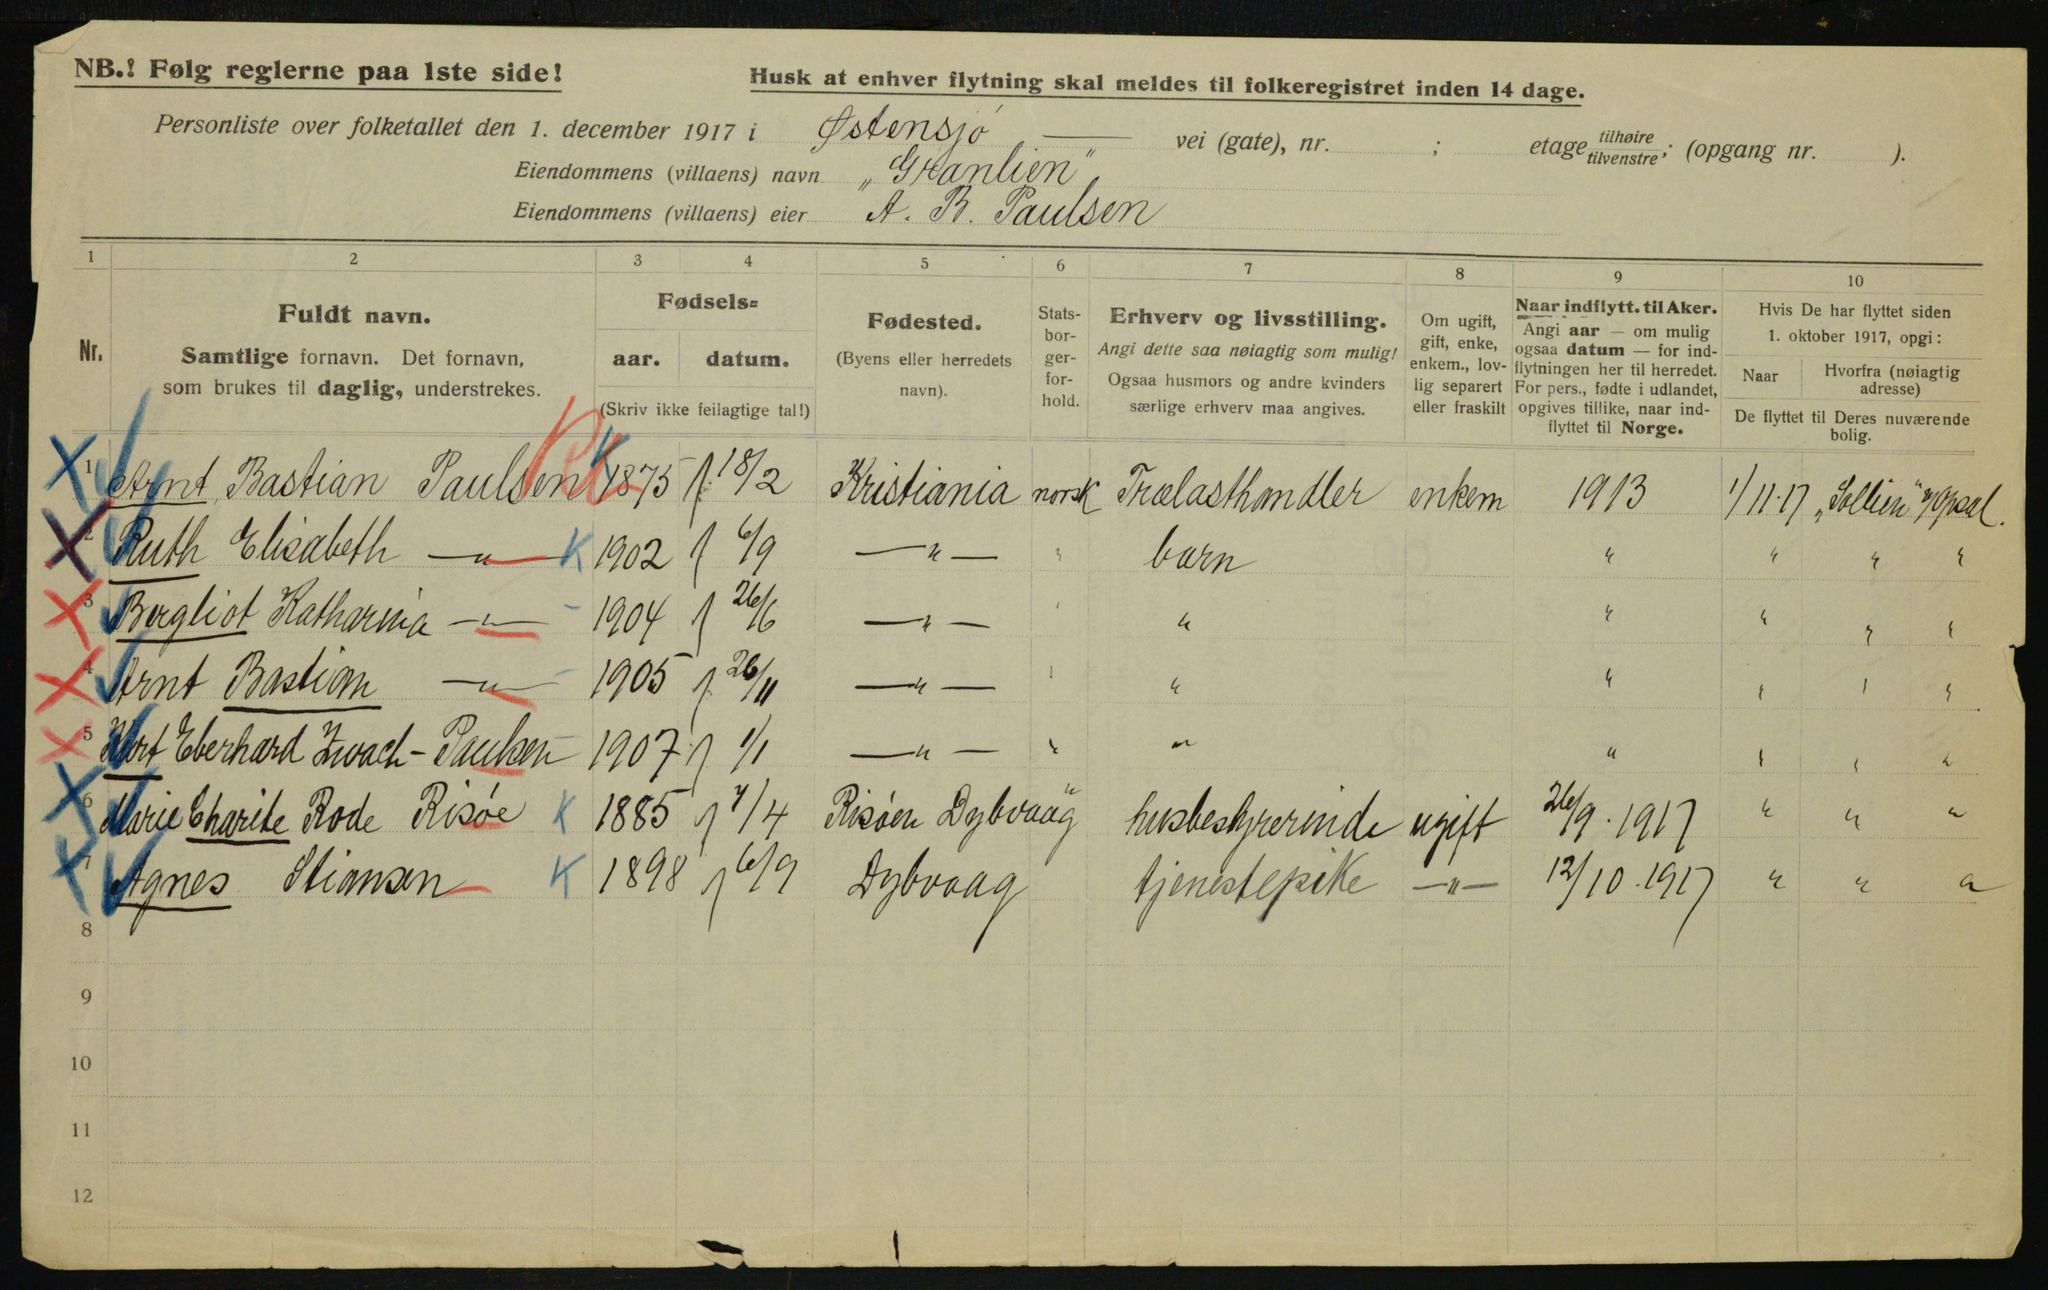 NB.! Følg reglerne paa 1ste side!
Husk at enhver flytning skal meldes til folkeregistret inden 14 dage.
Personliste over folketallet den 1. december 1917 i Østensjø — vei (gate), nr. ; etage tilhøire/tilvenstre; (opgang nr. ).
Eiendommens (villaens) navn „Granlien"
Eiendommens (villaens) eier A. B. Paulsen
1 2 3 4 5 6 7 8 9 10
Nr.
Fuldt navn.
Samtlige fornavn. Det fornavn,
som brukes til daglig, understrekes.
Fødsels-
aar. datum.
(Skriv ikke feilagtige tal!)
Fødested.
(Byens eller herredets
navn).
Stats-
bor-
ger-
for-
hold.
Erhverv og livsstilling.
Angi dette saa nøiagtig som mulig!
Ogsaa husmors og andre kvinders
særlige erhverv maa angives.
Om ugift,
gift, enke,
enkem., lov-
lig separert
eller fraskilt
Naar indflytt. til Aker.
Angi aar — om mulig
ogsaa datum — for ind-
flytningen her til herredet.
For pers., fødte i udlandet,
opgives tillike, naar ind-
flyttet til Norge.
Hvis De har flyttet siden
1. oktober 1917, opgi:
Naar
Hvorfra (nøiagtig
adresse)
De flyttet til Deres nuværende
bolig.
1 Arnt Bastian Paulsen K 1875 18/2 Kristiania norsk Trælasthandler enkem 1913 1/11-17 „Sollien" Opsal.
2 Ruth Elisabeth —„— K 1902 6/9 —„— „ barn „ „ „ „
3 Bergliot Katharina —„— 1904 26/6 —„— „ „ „ „ „
4 Arnt Bastian —„— 1905 26/11 —„— „ „ „ „ „
5 Eberhard Zwach-Paulsen 1907 1/1 —„— „ „ „ „ „ „
6 Marie Charite Rode Risøe K 1885 4 Risøen Dybvaag husbestyrerinde ugift 26/9.1917 „ „ „
7 Agnes Stiansen K 1898 6/9 Dybvaag tjenestepike —„— 12/10.1917 „ „ „
8
9
10
11
12